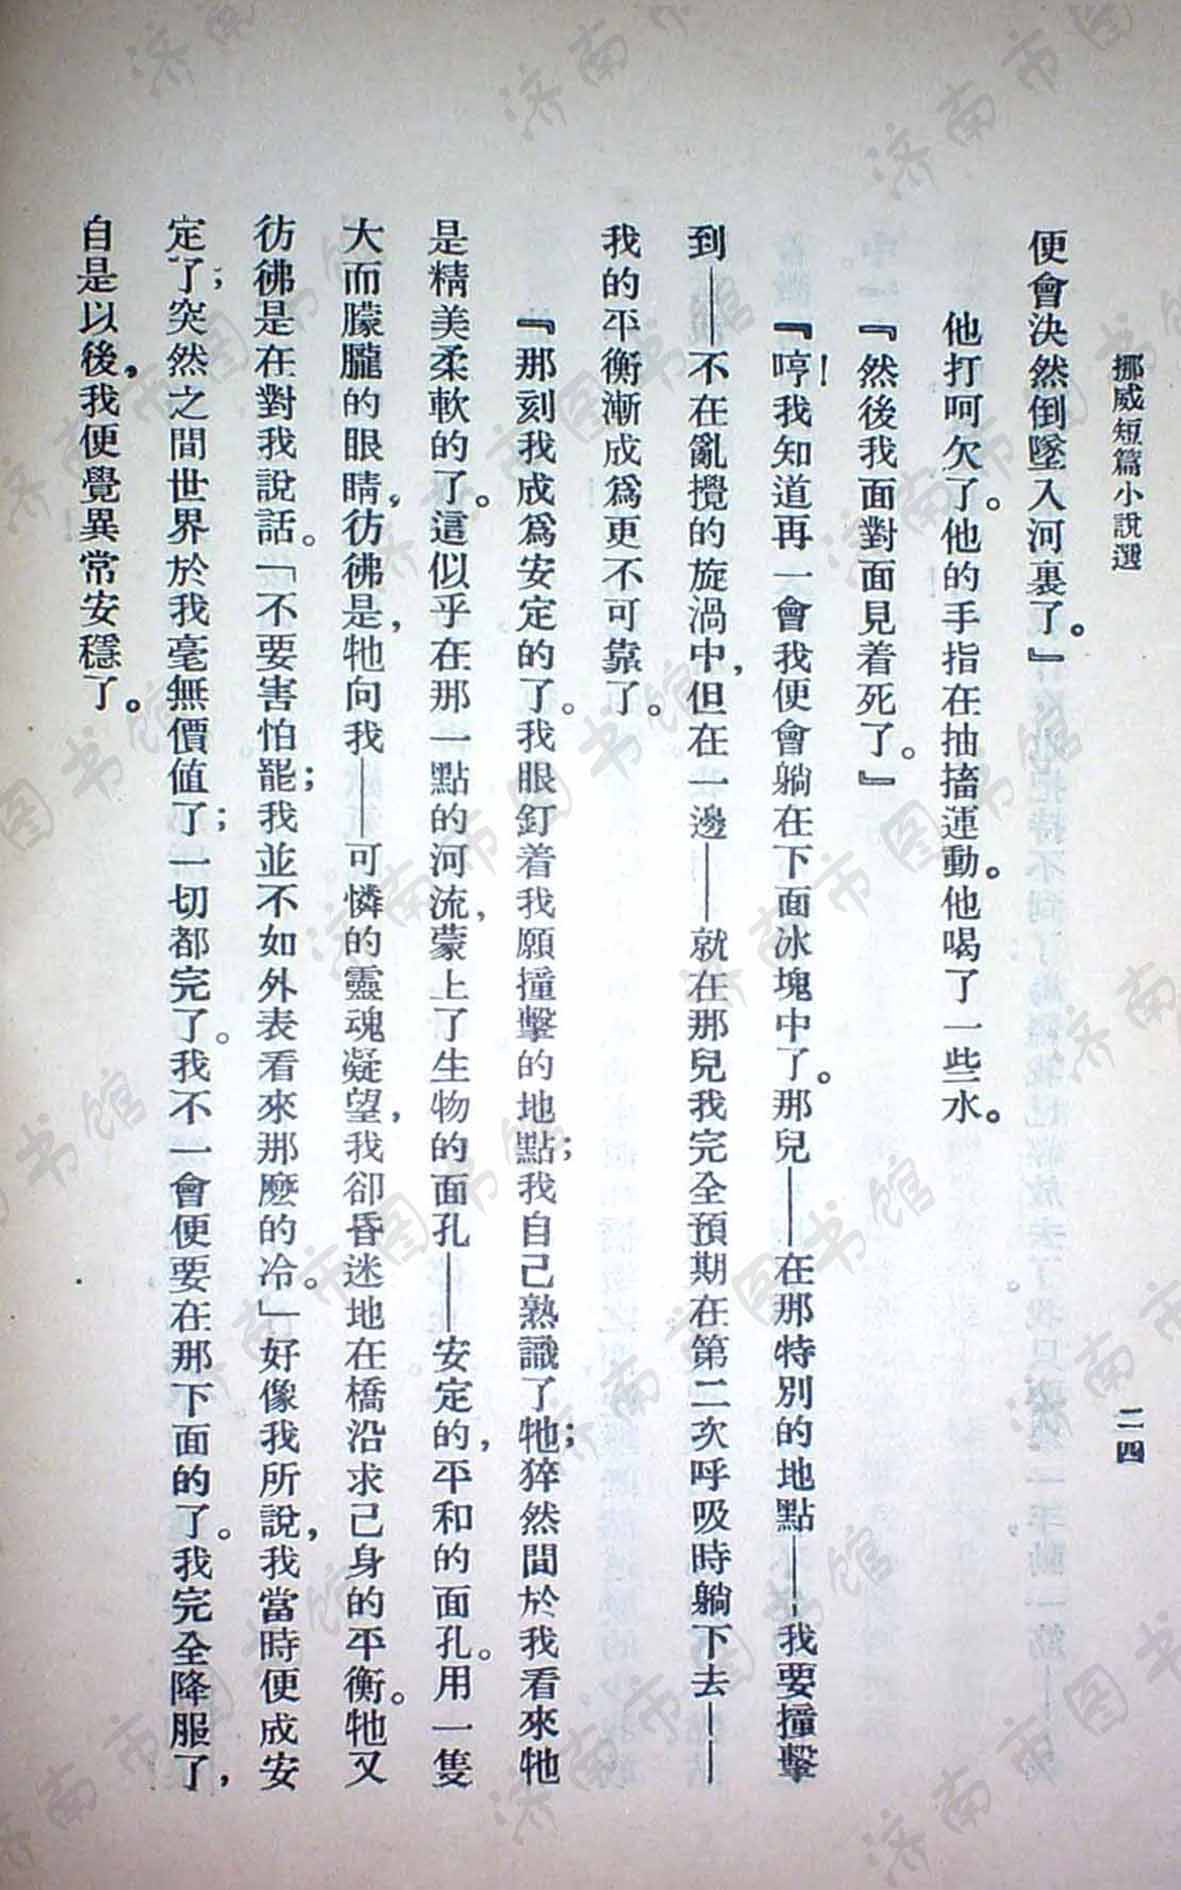 挪威短篇小說選
二四
便會決然倒墜入河裏了。』
他打呵欠了。他的手指在抽搐運動。他喝了一些水。
『然後我面對面見着死了。』
『哼!我知道再一會我便會躺在下面冰塊中了。那兒——在那特別的地點——我要撞擊
到——不在亂攪的旋渦中,但在一邊——就在那兒我完全預期在第二次呼吸時躺下去——
我的平衡漸成爲更不可靠了。
『那刻我成爲安定的了。我眼釘着我願撞擊的地點;我自己熟識了牠;牠猝然間於我看來牠
是精美柔軟的了。這似乎在那一點的河流,蒙上了生物的面孔——安定的,平和的面孔。用一隻
大而朦朧的眼睛,彷彿是,牠向我——可憐的靈魂凝望,我卻昏迷地在橋沿求己身的平衡。牠又
彷彿是在對我說話。「不要害怕罷;我並不如外表看來那麽的冷。」好像我所說,我當時便成安
定了;突然之間世界於我毫無價値了;一切都完了。我不一會便要在那下面的了。我完全降服了,
自是以後,我便覺異常安穩了。
济南市图书馆